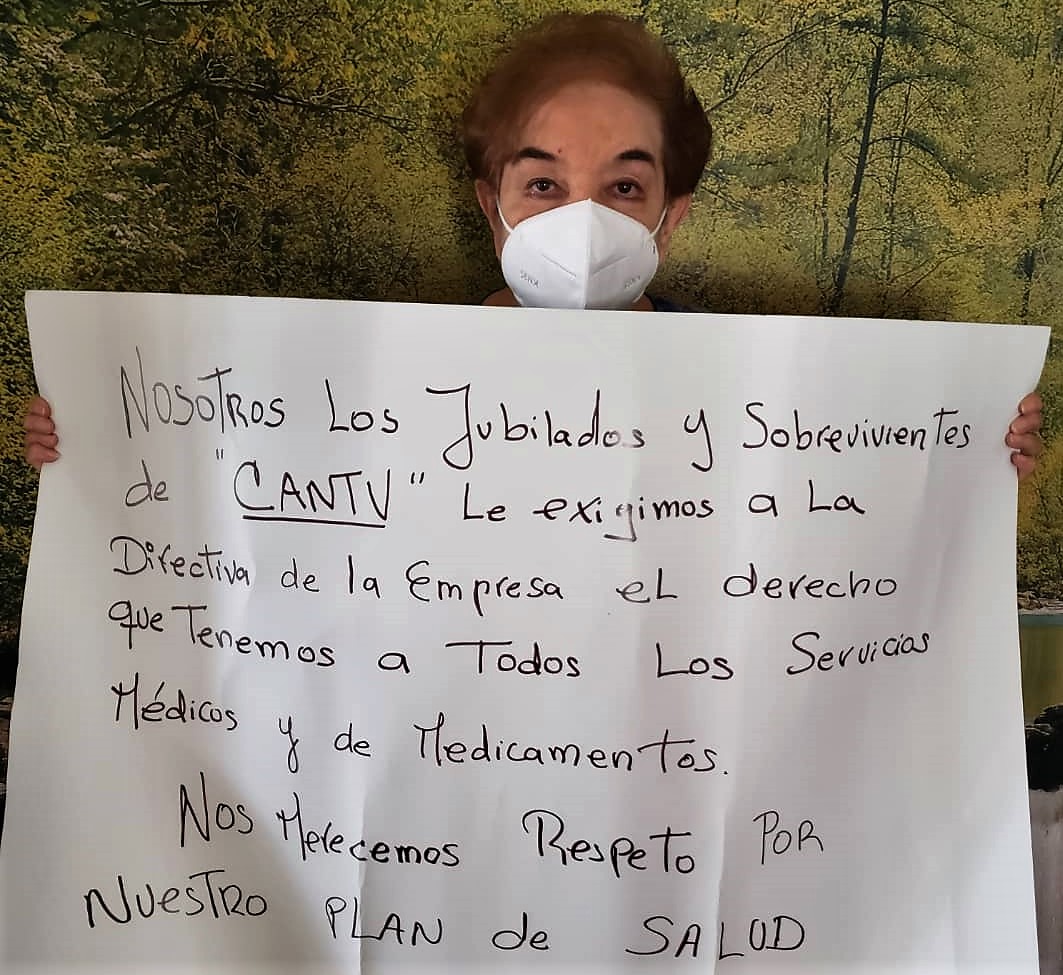 Nosotros Los Jubilados y Sobrevivientes
de "CANTV" Le exigimos a La
Directiva de la Empresa el derecho
que Tenemos a Todos Los Servicios
Médicos y de Medicamentos.
Nos Merecemos Respeto Por
Nuestro PLAN de SALUD